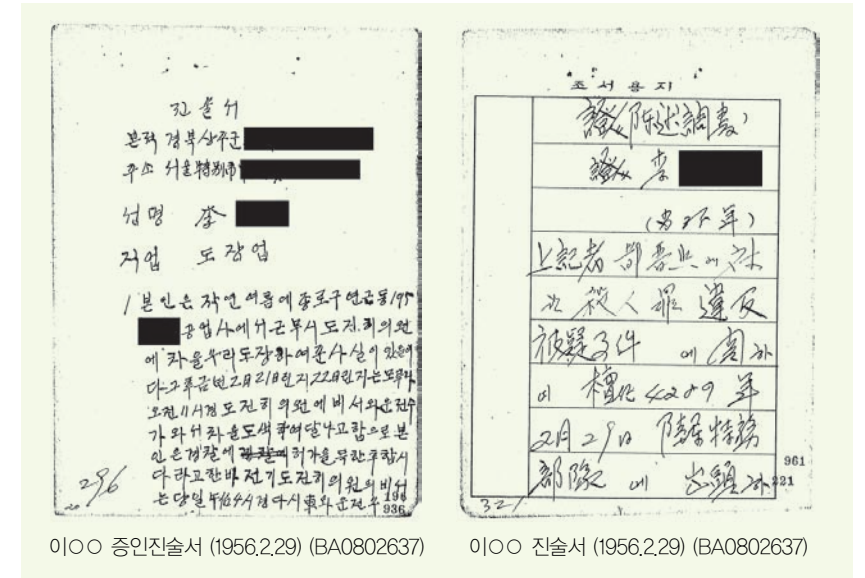 진술서
본적 경북상주군
주소 서울特別市
성명 李
직업 도장업
1 본인은 작연여름에 종로구 연근동 195
공업사에서 근무시 도진희의원
에 차을우리도장하여준사실이 있음이
다 그후금번2月21日인지22日인지는모루나
오전11시경 도진희의원에 비서와운전수
가와서차을도색하여달나고함으로본
인은경찰에 허가을득한후합시
다라고한바전기도진희의원의비서
는당일午後4시경다시車와운전수
296
196
936
조서용지
證人陳述調書
證人 李
(当 年)
上記者 에対
한 殺人罪 違反
被疑事件 에 関하
여 檀紀 4289 年
2月 29日 陸軍特務
部隊 에 出頭하
961
221
321
이○○ 증인진술서 (1956.2.29) (BA0802637)
이○○ 진술서 (1956.2.29) (BA0802637)